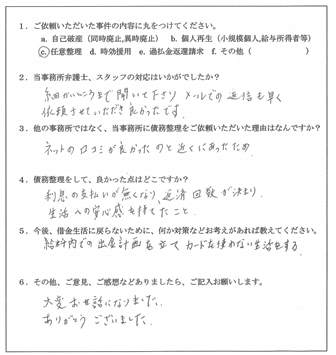 1．ご依頼いただいた事件の内容に丸をつけてください。
a. 自己破産（同時廃止,異時廃止） b. 個人再生（小規模個人,給与所得者等）
c. 任意整理 d. 時効援用 e. 過払金返還請求 f. その他（ ）
2．当事務所弁護士、スタッフの対応はいかがでしたか？
細かいところまで聞いて下さり メールでの返信も早く
依頼させていただき良かったです。
3．他の事務所ではなく、当事務所に債務整理をご依頼いただいた理由はなんですか？
ネットの口コミが良かったのと近くにあったため
4．債務整理をして、良かった点はどこですか？
利息の支払いが無くなり、返済回数が決まり、
生活への安心感を持てたこと。
5．今後、借金生活に戻らないために、何か対策などお考えがあれば教えてください。
給料内での出金計画を立て カードを使わない生活をする。
6．その他、ご意見、ご感想などありましたら、ご記入お願いします。
大変お世話になりました。
ありがとうございました。